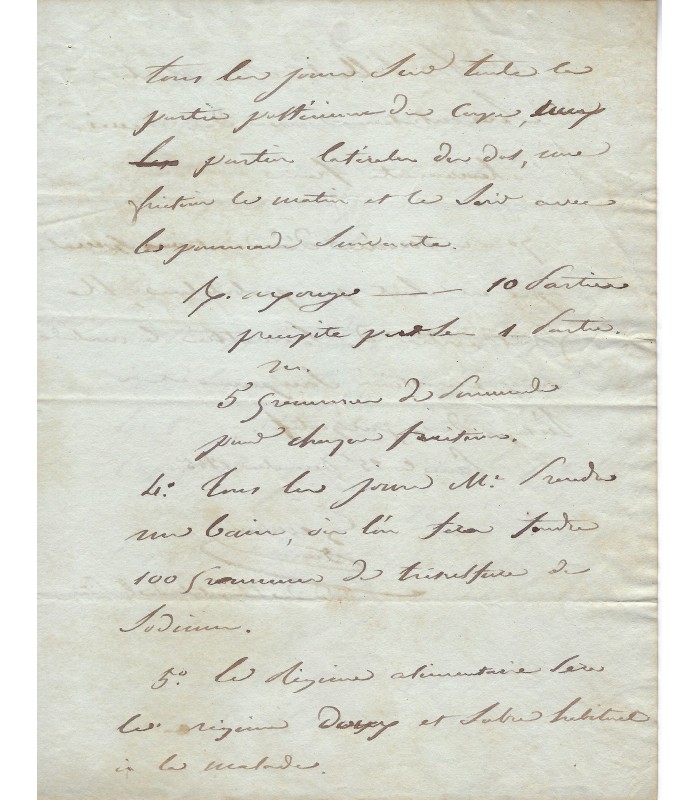 tous les jours sur toute la
partie postérieure du corps,
les parties latérales du dos, une
friction le matin et le soir avec
la pommade suivante.
℞. axonge — 10 Parties
précipité 1 Partie.
5 Grammes de Pommade
pour chaque friction.
4.° tous les jours Mr. Prendra
un bain, où l'on fera fondre
100 Grammes de trisulfure de
Sodium.
5.° le Régime alimentaire sera
le régime doux et sobre habituel
à la malade.